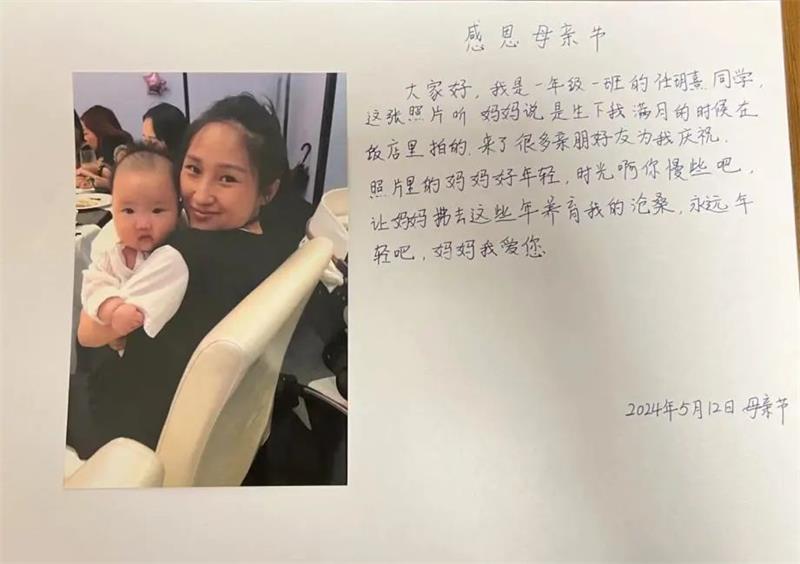 感恩母亲节
大家好，我是一年级一班的任玥熹同学，
这张照片听 妈妈说是生下我满月的时候在
饭店里拍的.来了很多亲朋好友为我庆祝.
照片里的妈妈好年轻，时光啊你慢些吧，
让妈妈拂去这些年养育我的沧桑，永远年
轻吧，妈妈我爱您.
2024年5月12日 母亲节